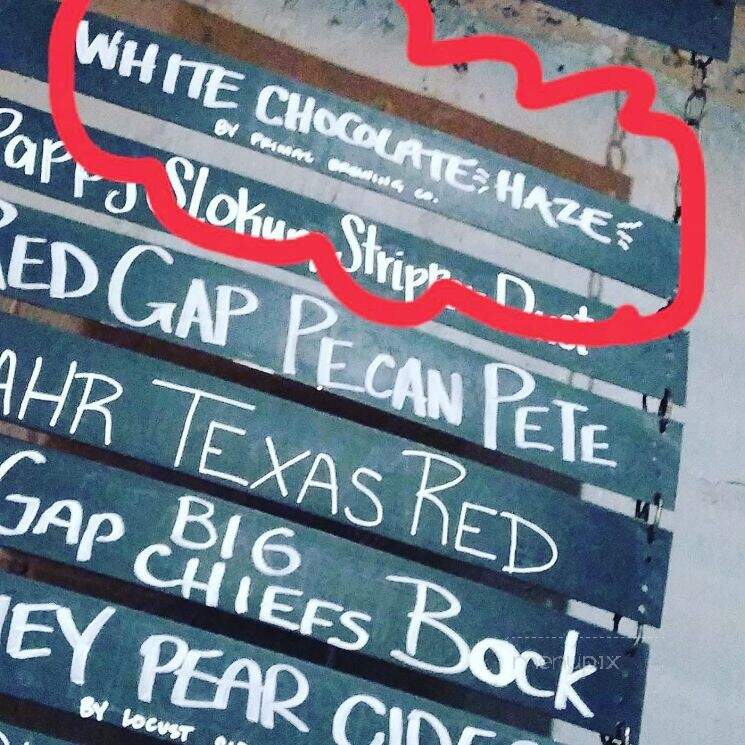 WHITE CHOCOLATE HAZE
BY PRIMAL BREWING CO.
Pappy Slokum Strippy Dust
RED GAP PECAN PETE
AHR TEXAS RED
GAP BIG CHIEFS BOCK
EY PEAR CIDE
BY LOCUST
menupix